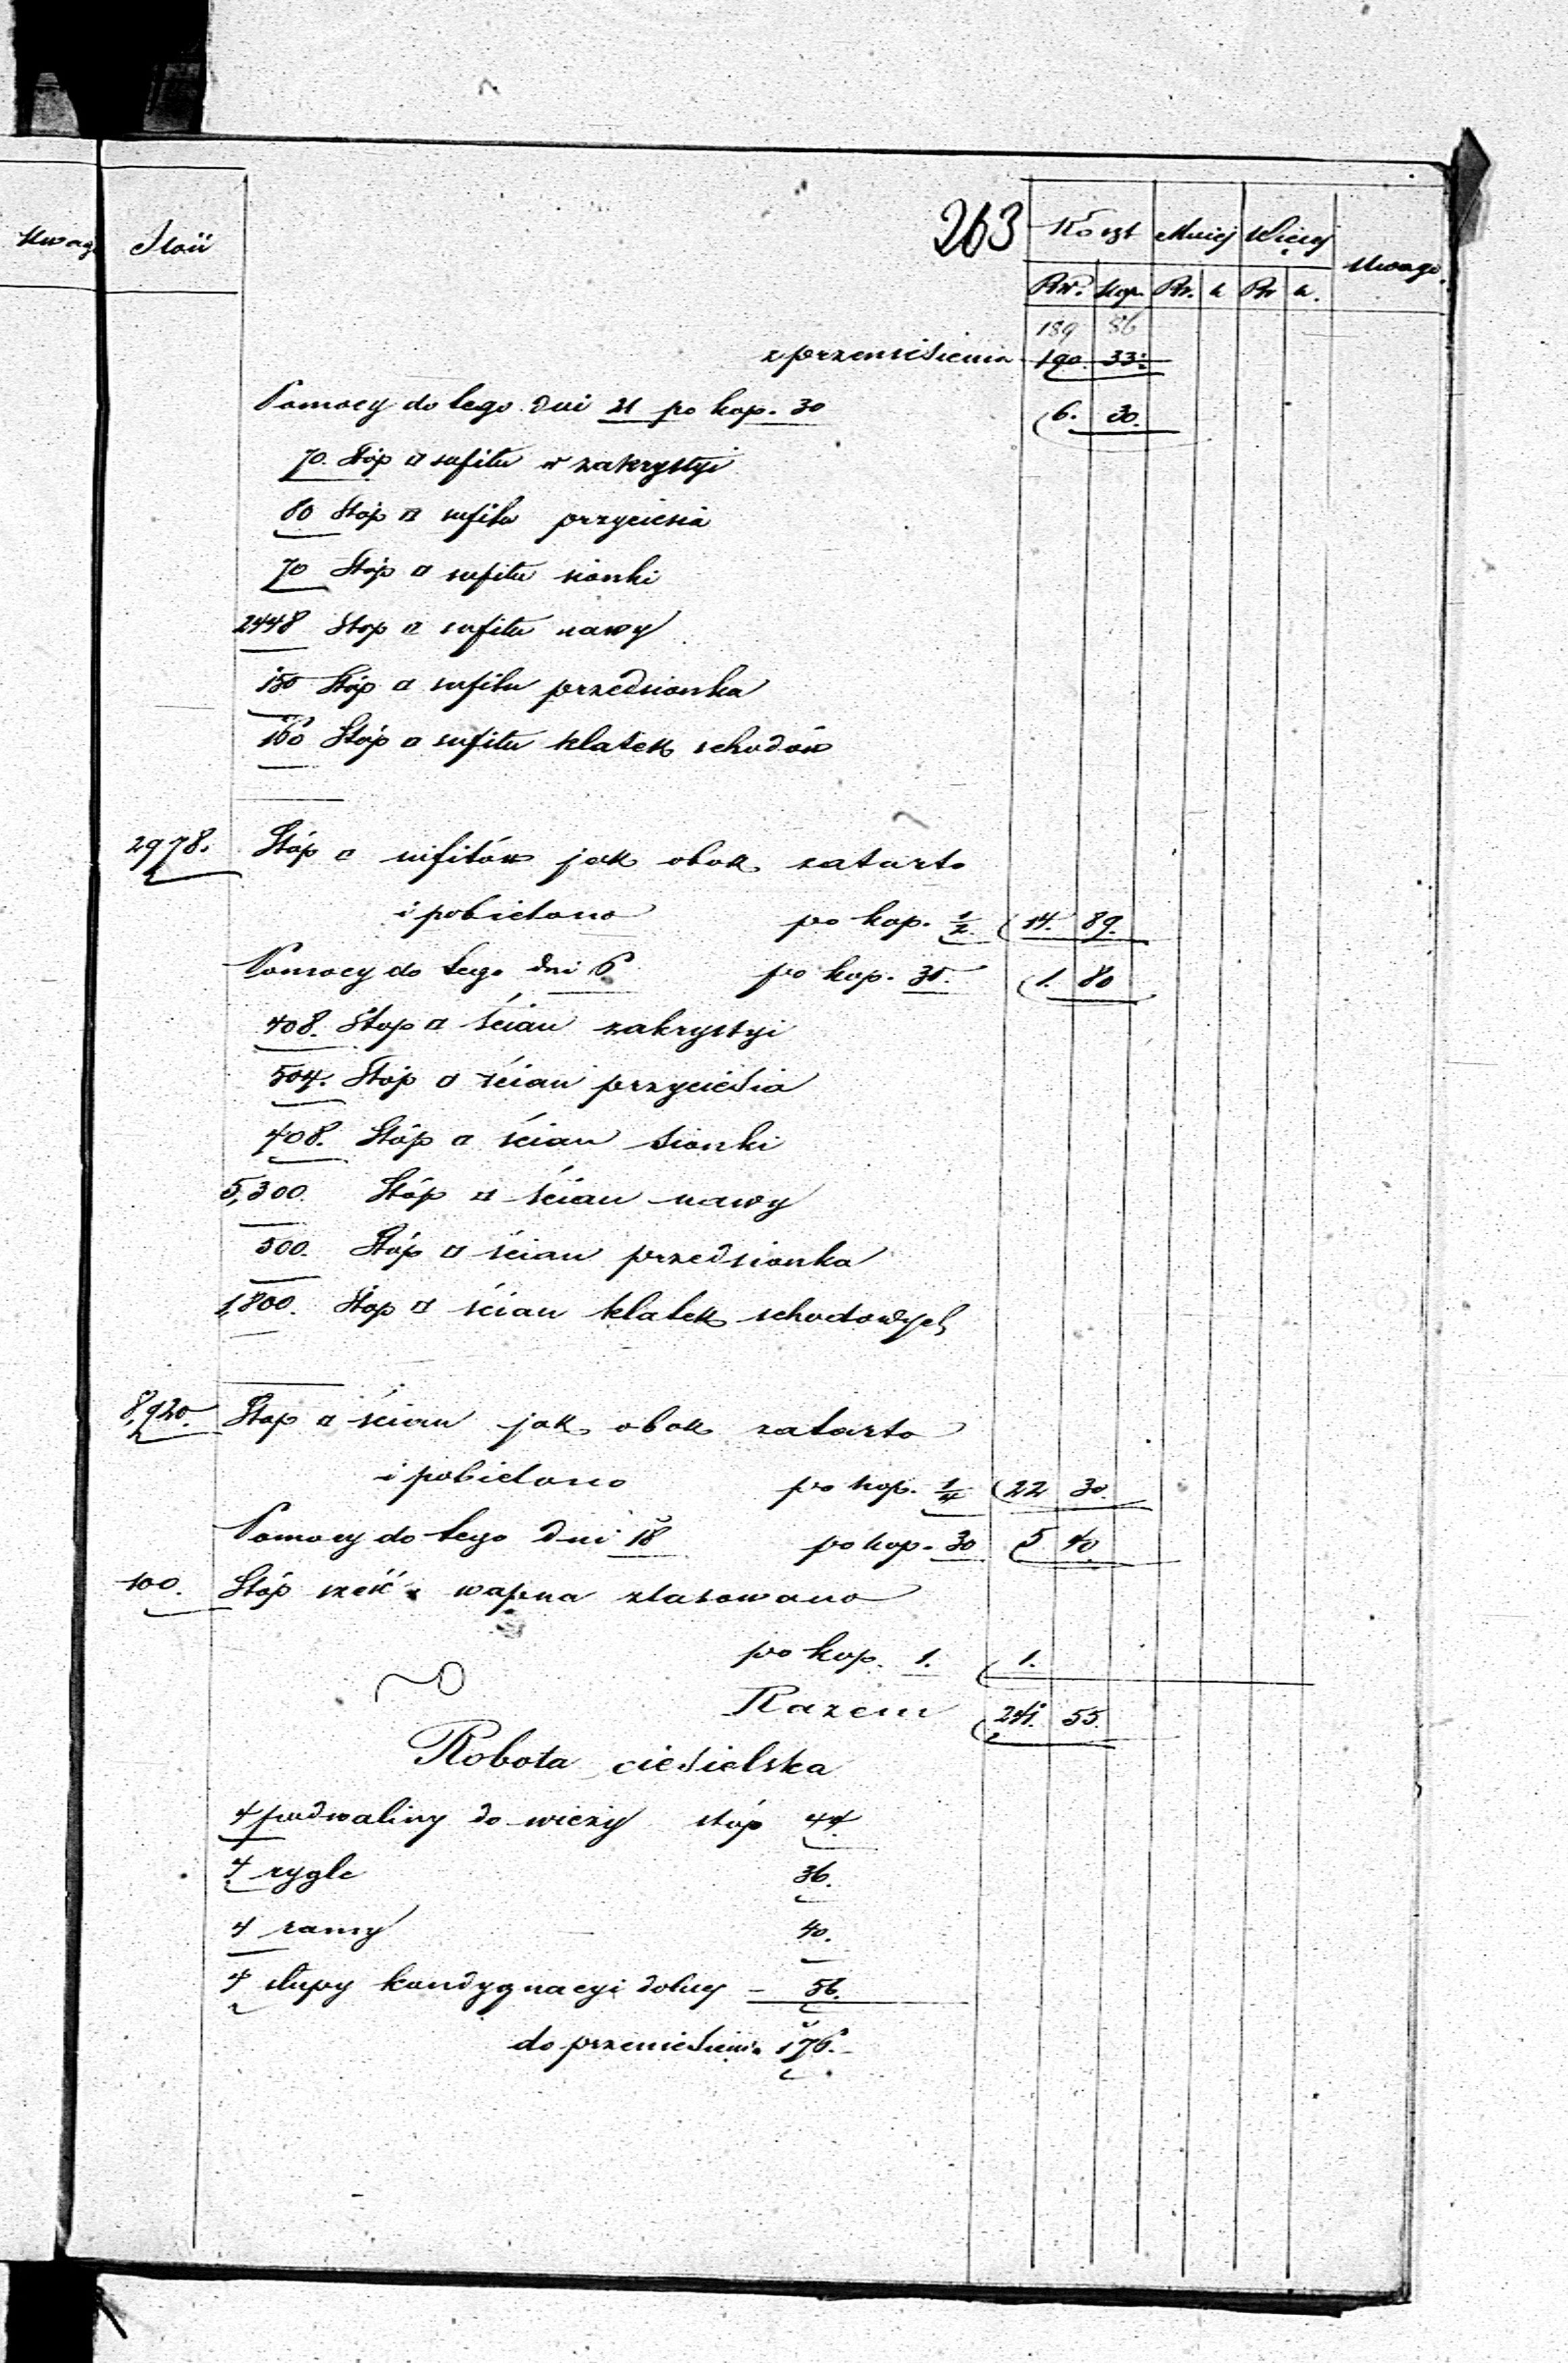 Uwag
Ilość
263
Koszt Mniej Więcej Uwaga.
Rsr. kop. Rs. k Rs k.
189 86
z przeniesienia 190. 33.
Pomocy do tego dni 21 po kop. 30 6. 30.
70. Stóp □ sufitu w zakrystyi
80 Stóp □ sufitu przyciesia
70 Stóp □ sufitu sionki
2448 Stóp □ sufitu nawy
150 Stóp □ sufitu przedsionka
160 Stóp □ sufitu klatek schodów
2978. Stóp □ sufitów jak obok zatarto
i pobielono po kop. ½. 14. 89.
Pomocy do tego dni 6 po kop. 30. 1. 80
408. Stóp □ ścian zakrystyi
504. Stóp □ ścian przyciesia
408. Stóp □ ścian sionki
5,300. Stóp □ ścian nawy
500. Stóp □ ścian przedsionka
1,800. Stóp □ ścian klatek schodowych
8,920. Stóp □ ścian jak obok zatarto
i pobielono po kop. ¼ 22 30.
Pomocy do tego dni 18 po kop. 30 5 40.
100. Stóp sześć. wapna zlasowano
po kop. 1. 1.
Razem 241. 55.
Robota ciesielska
4 podwaliny do wieży stóp 44.
4 rygle 36.
4 ramy 40.
4 słupy kondygnacyi dolnej – 56.
do przeniesienia 176.–